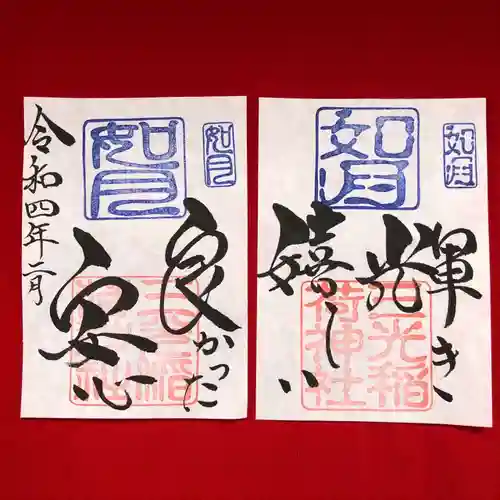 如月
如月
良かった
安心
三光稲
荷神社
令和四年二月
如月
如月
輝き
光
嬉しい
三光稲
荷神社